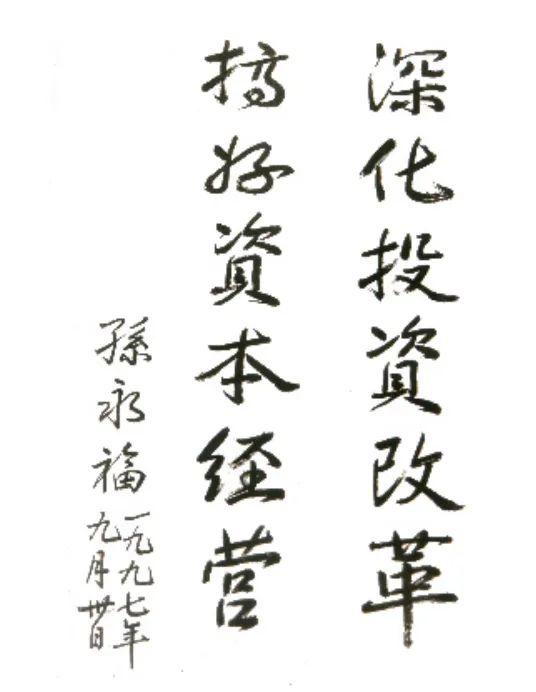 深化投資改革
搞好資本经营
孫永福
一九九七年
九月卅日